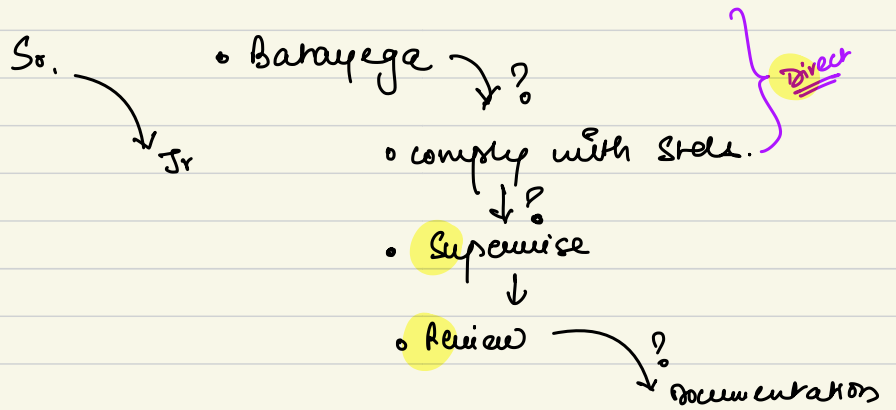 Sr.
• Batayega ?
Direct
• comply with Stds.
Jr
?
• Supervise
• Review
?
Documentation